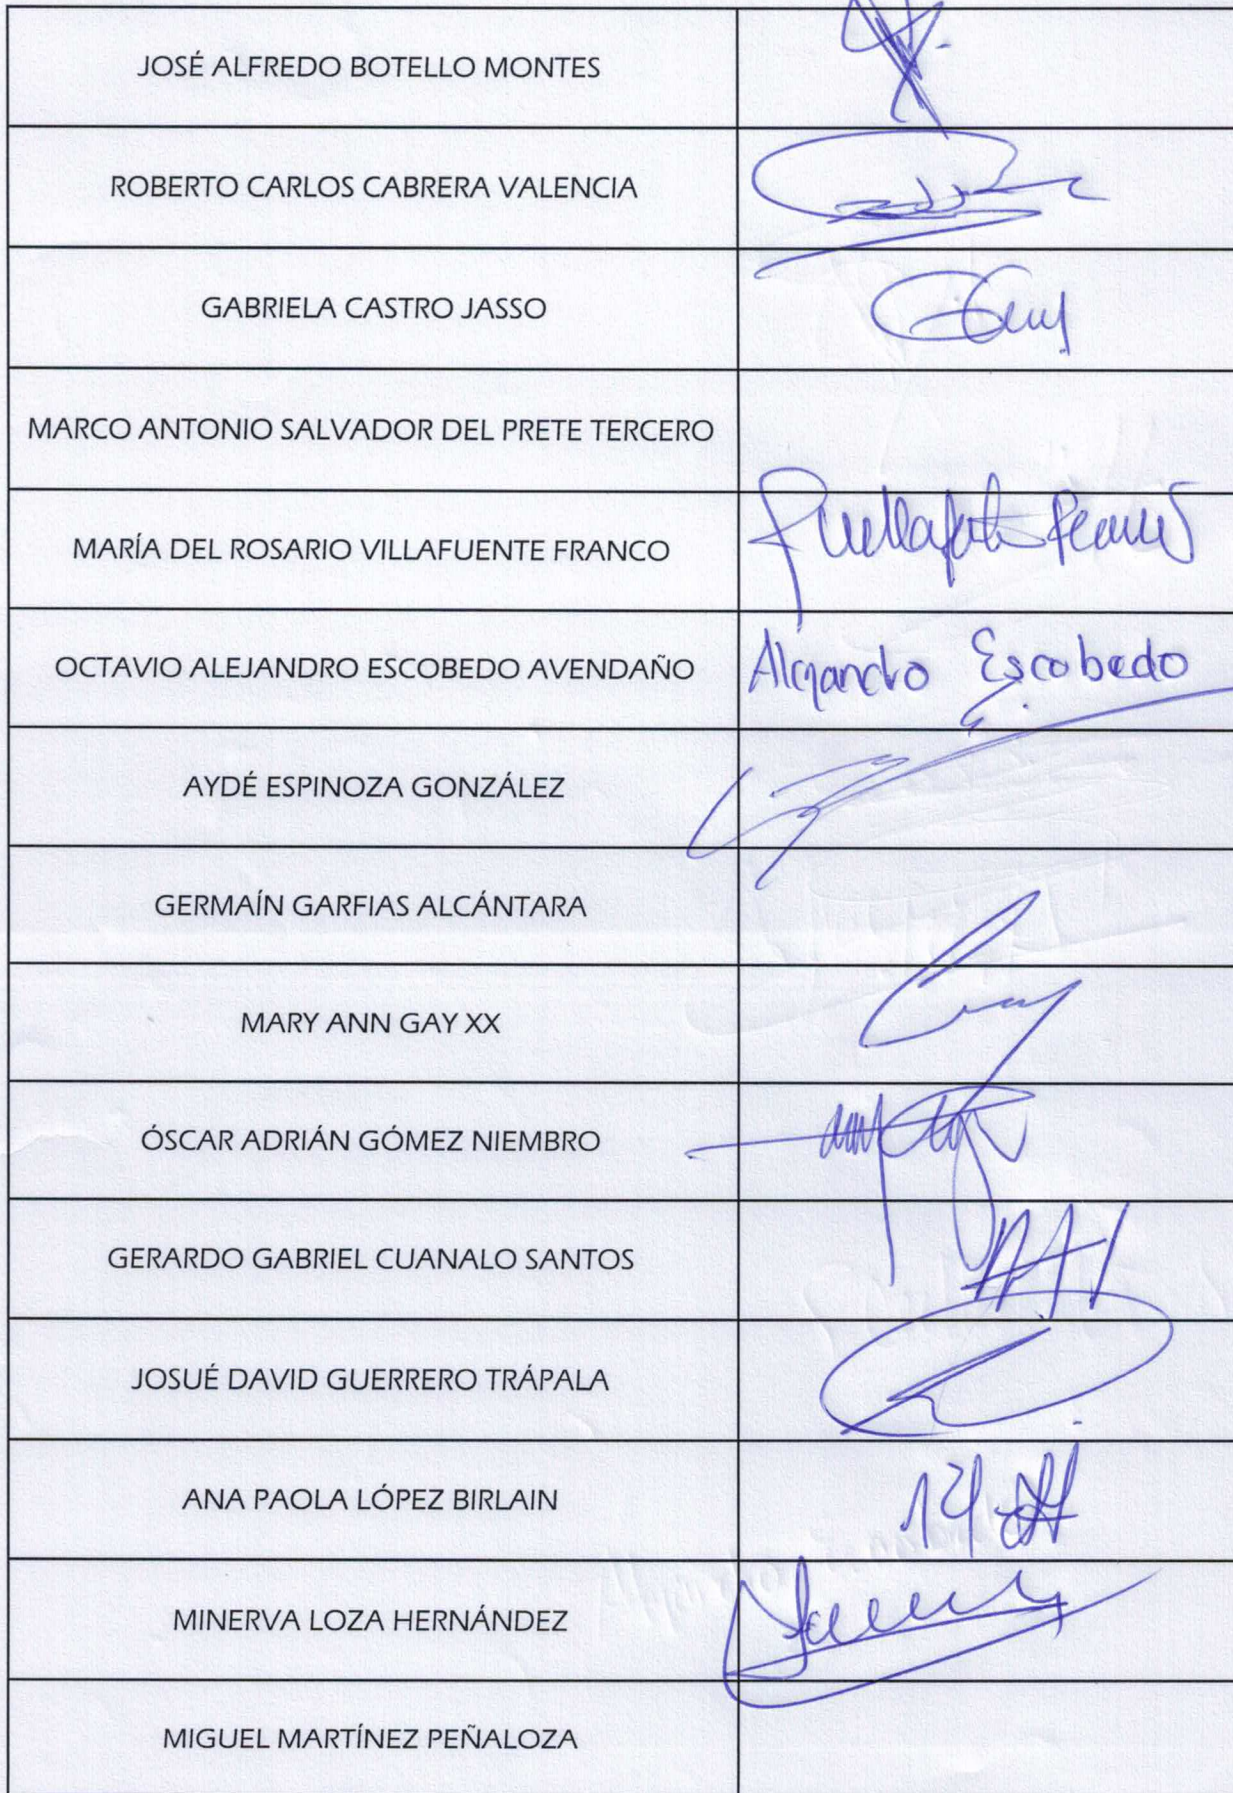 JOSÉ ALFREDO BOTELLO MONTES
ROBERTO CARLOS CABRERA VALENCIA
GABRIELA CASTRO JASSO
MARCO ANTONIO SALVADOR DEL PRETE TERCERO
MARÍA DEL ROSARIO VILLAFUENTE FRANCO
OCTAVIO ALEJANDRO ESCOBEDO AVENDAÑO Alejandro Escobedo
AYDÉ ESPINOZA GONZÁLEZ
GERMAÍN GARFIAS ALCÁNTARA
MARY ANN GAY XX
ÓSCAR ADRIÁN GÓMEZ NIEMBRO
GERARDO GABRIEL CUANALO SANTOS
JOSUÉ DAVID GUERRERO TRÁPALA
ANA PAOLA LÓPEZ BIRLAIN
MINERVA LOZA HERNÁNDEZ
MIGUEL MARTÍNEZ PEÑALOZA